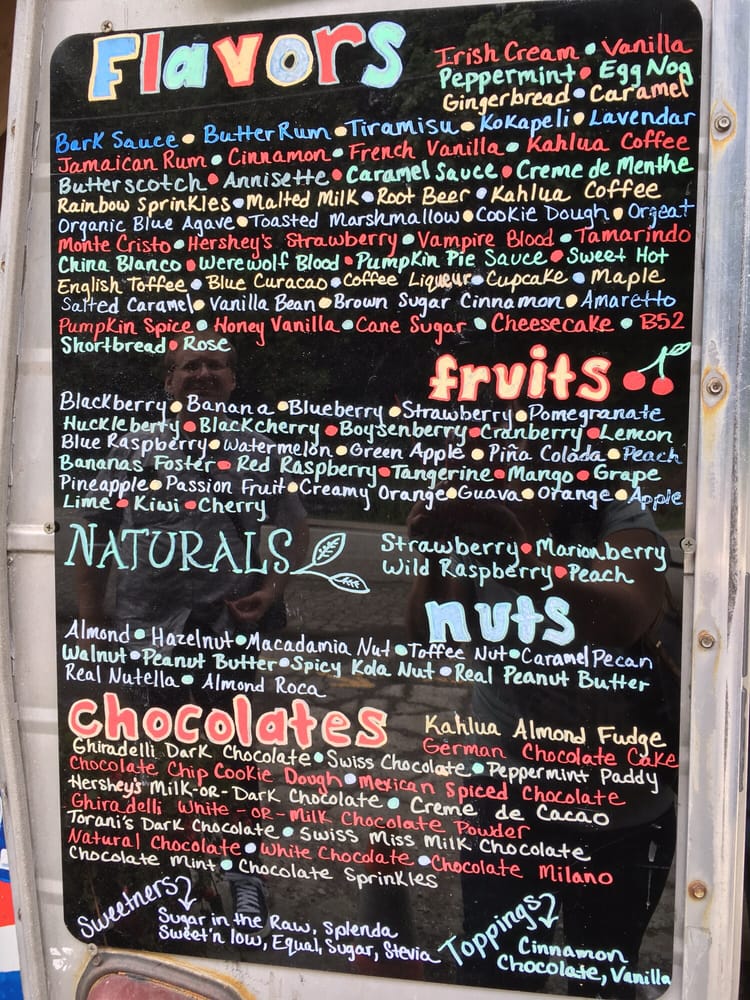 Flavors
Irish Cream • Vanilla
Peppermint • Egg Nog
Gingerbread • Caramel
Bark Sauce • Butter Rum • Tiramisu • Kokapeli • Lavendar
Jamaican Rum • Cinnamon • French Vanilla • Kahlua Coffee
Butterscotch • Annisette • Caramel Sauce • Creme de Menthe
Rainbow Sprinkles • Malted Milk • Root Beer • Kahlua Coffee
Organic Blue Agave • Toasted Marshmallow • Cookie Dough • Orgeat
Monte Cristo • Hershey's Strawberry • Vampire Blood • Tamarindo
China Blanco • Werewolf Blood • Pumpkin Pie Sauce • Sweet Hot
English Toffee • Blue Curacao • Coffee Liqueur • Cupcake • Maple
Salted Caramel • Vanilla Bean • Brown Sugar Cinnamon • Amaretto
Pumpkin Spice • Honey Vanilla • Cane Sugar • Cheesecake • B52
Shortbread • Rose
fruits
Blackberry • Banana • Blueberry • Strawberry • Pomegranate
Huckleberry • Black Cherry • Boysenberry • Cranberry • Lemon
Blue Raspberry • Watermelon • Green Apple • Piña Colada • Peach
Bananas Foster • Red Raspberry • Tangerine • Mango • Grape
Pineapple • Passion Fruit • Creamy Orange • Guava • Orange • Apple
Lime • Kiwi • Cherry
NATURALS
Strawberry • Marionberry
Wild Raspberry • Peach
nuts
Almond • Hazelnut • Macadamia Nut • Toffee Nut • Caramel Pecan
Walnut • Peanut Butter • Spicy Kola Nut • Real Peanut Butter
Real Nutella • Almond Roca
chocolates
Kahlua Almond Fudge
German Chocolate Cake
Ghiradelli Dark Chocolate • Swiss Chocolate • Peppermint Paddy
Chocolate Chip Cookie Dough • Mexican Spiced Chocolate
Hershey's Milk-or-Dark Chocolate • Creme de Cacao
Ghiradelli White-or-Milk Chocolate Powder
Torani's Dark Chocolate • Swiss Miss Milk Chocolate
Natural Chocolate • White Chocolate • Chocolate Milano
Chocolate Mint • Chocolate Sprinkles
Sweetners
Sugar in the Raw, Splenda
Sweet'n low, Equal, Sugar, Stevia
Toppings
Cinnamon
Chocolate, Vanilla